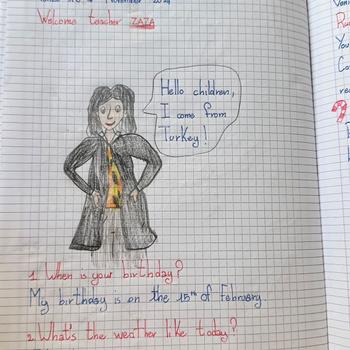 November 2024
Welcome teacher ZAZA
Hello children,
I come from
Turkey!
1. When is your birthday?
My birthday is on the 15th of February.
2. What's the weather like today?
You